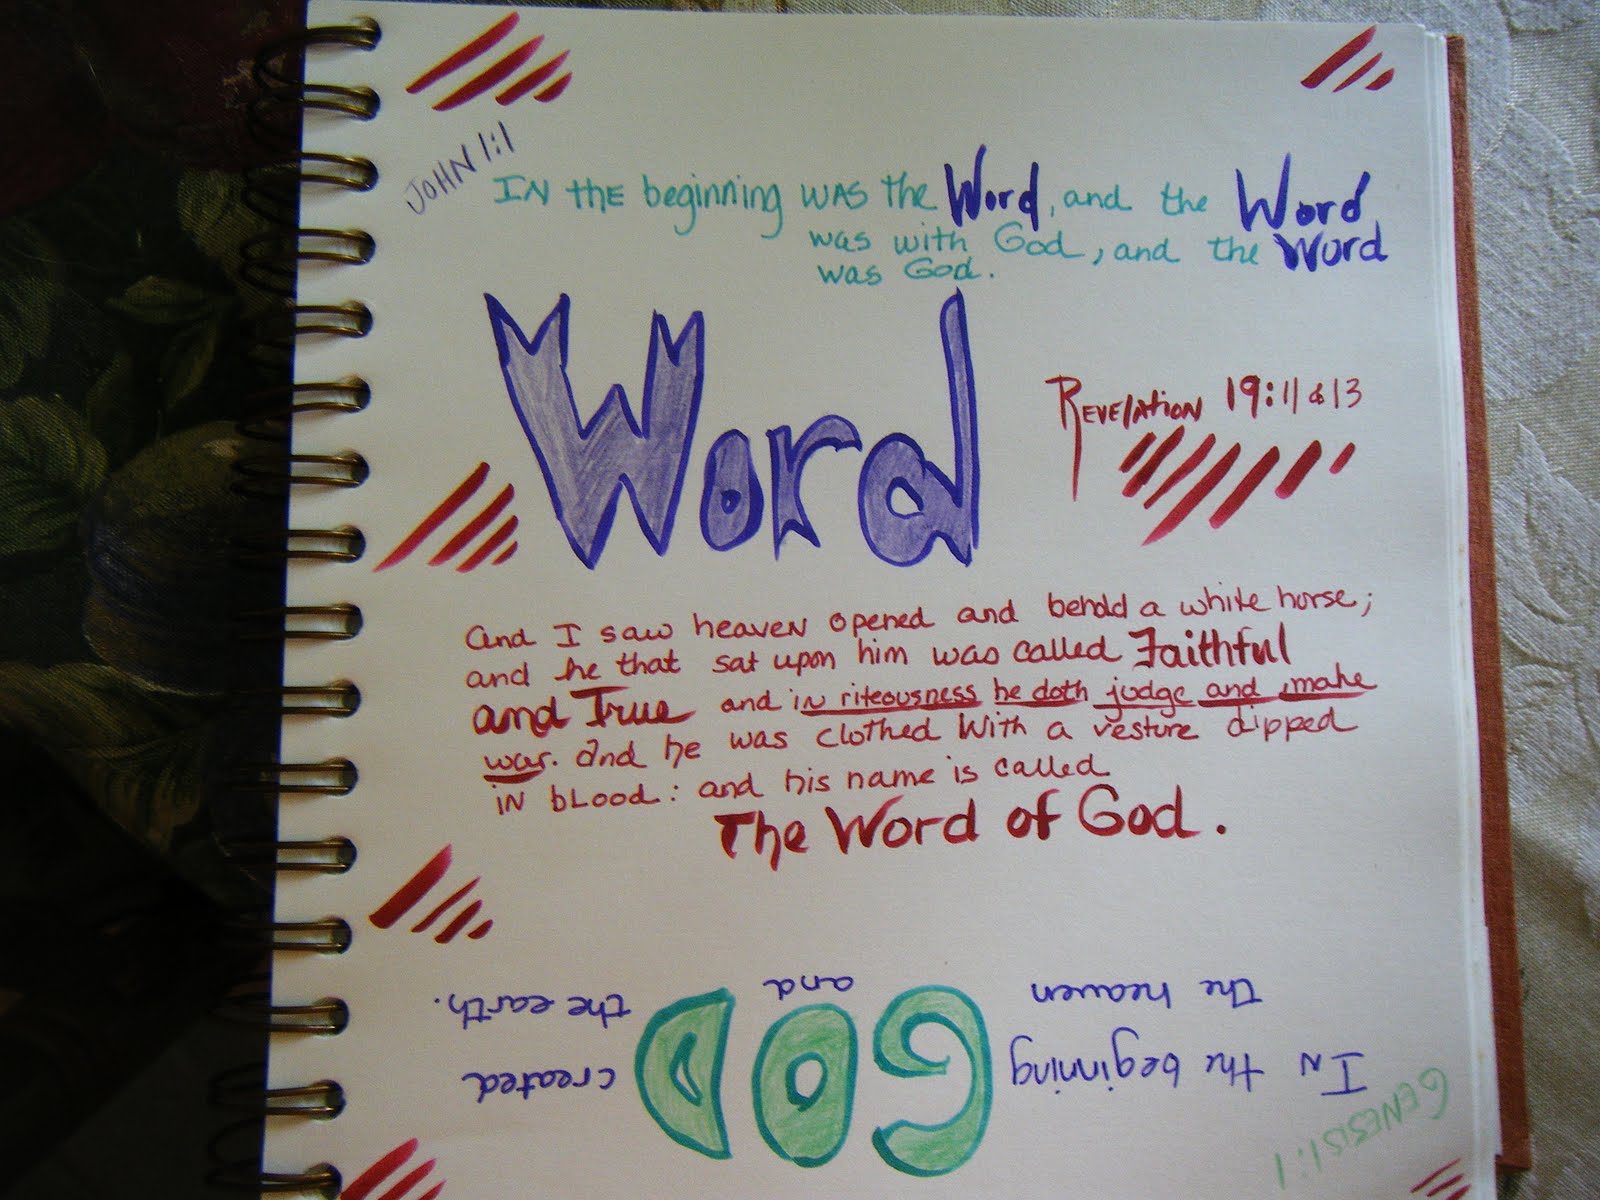 JOHN 1:1
IN the beginning WAS the Word, and the Word
was with God, and the Word
was God.
Word
REVELATION 19:11 & 13
and I saw heaven opened and behold a white horse;
and he that sat upon him was called Faithful
and True and in riteousness he doth judge and make
war. and he was clothed With a vesture dipped
IN bLood: and his name is called
The Word of God.
GENESIS 1:1
IN the beginning GOD created
the heaven and the earth.